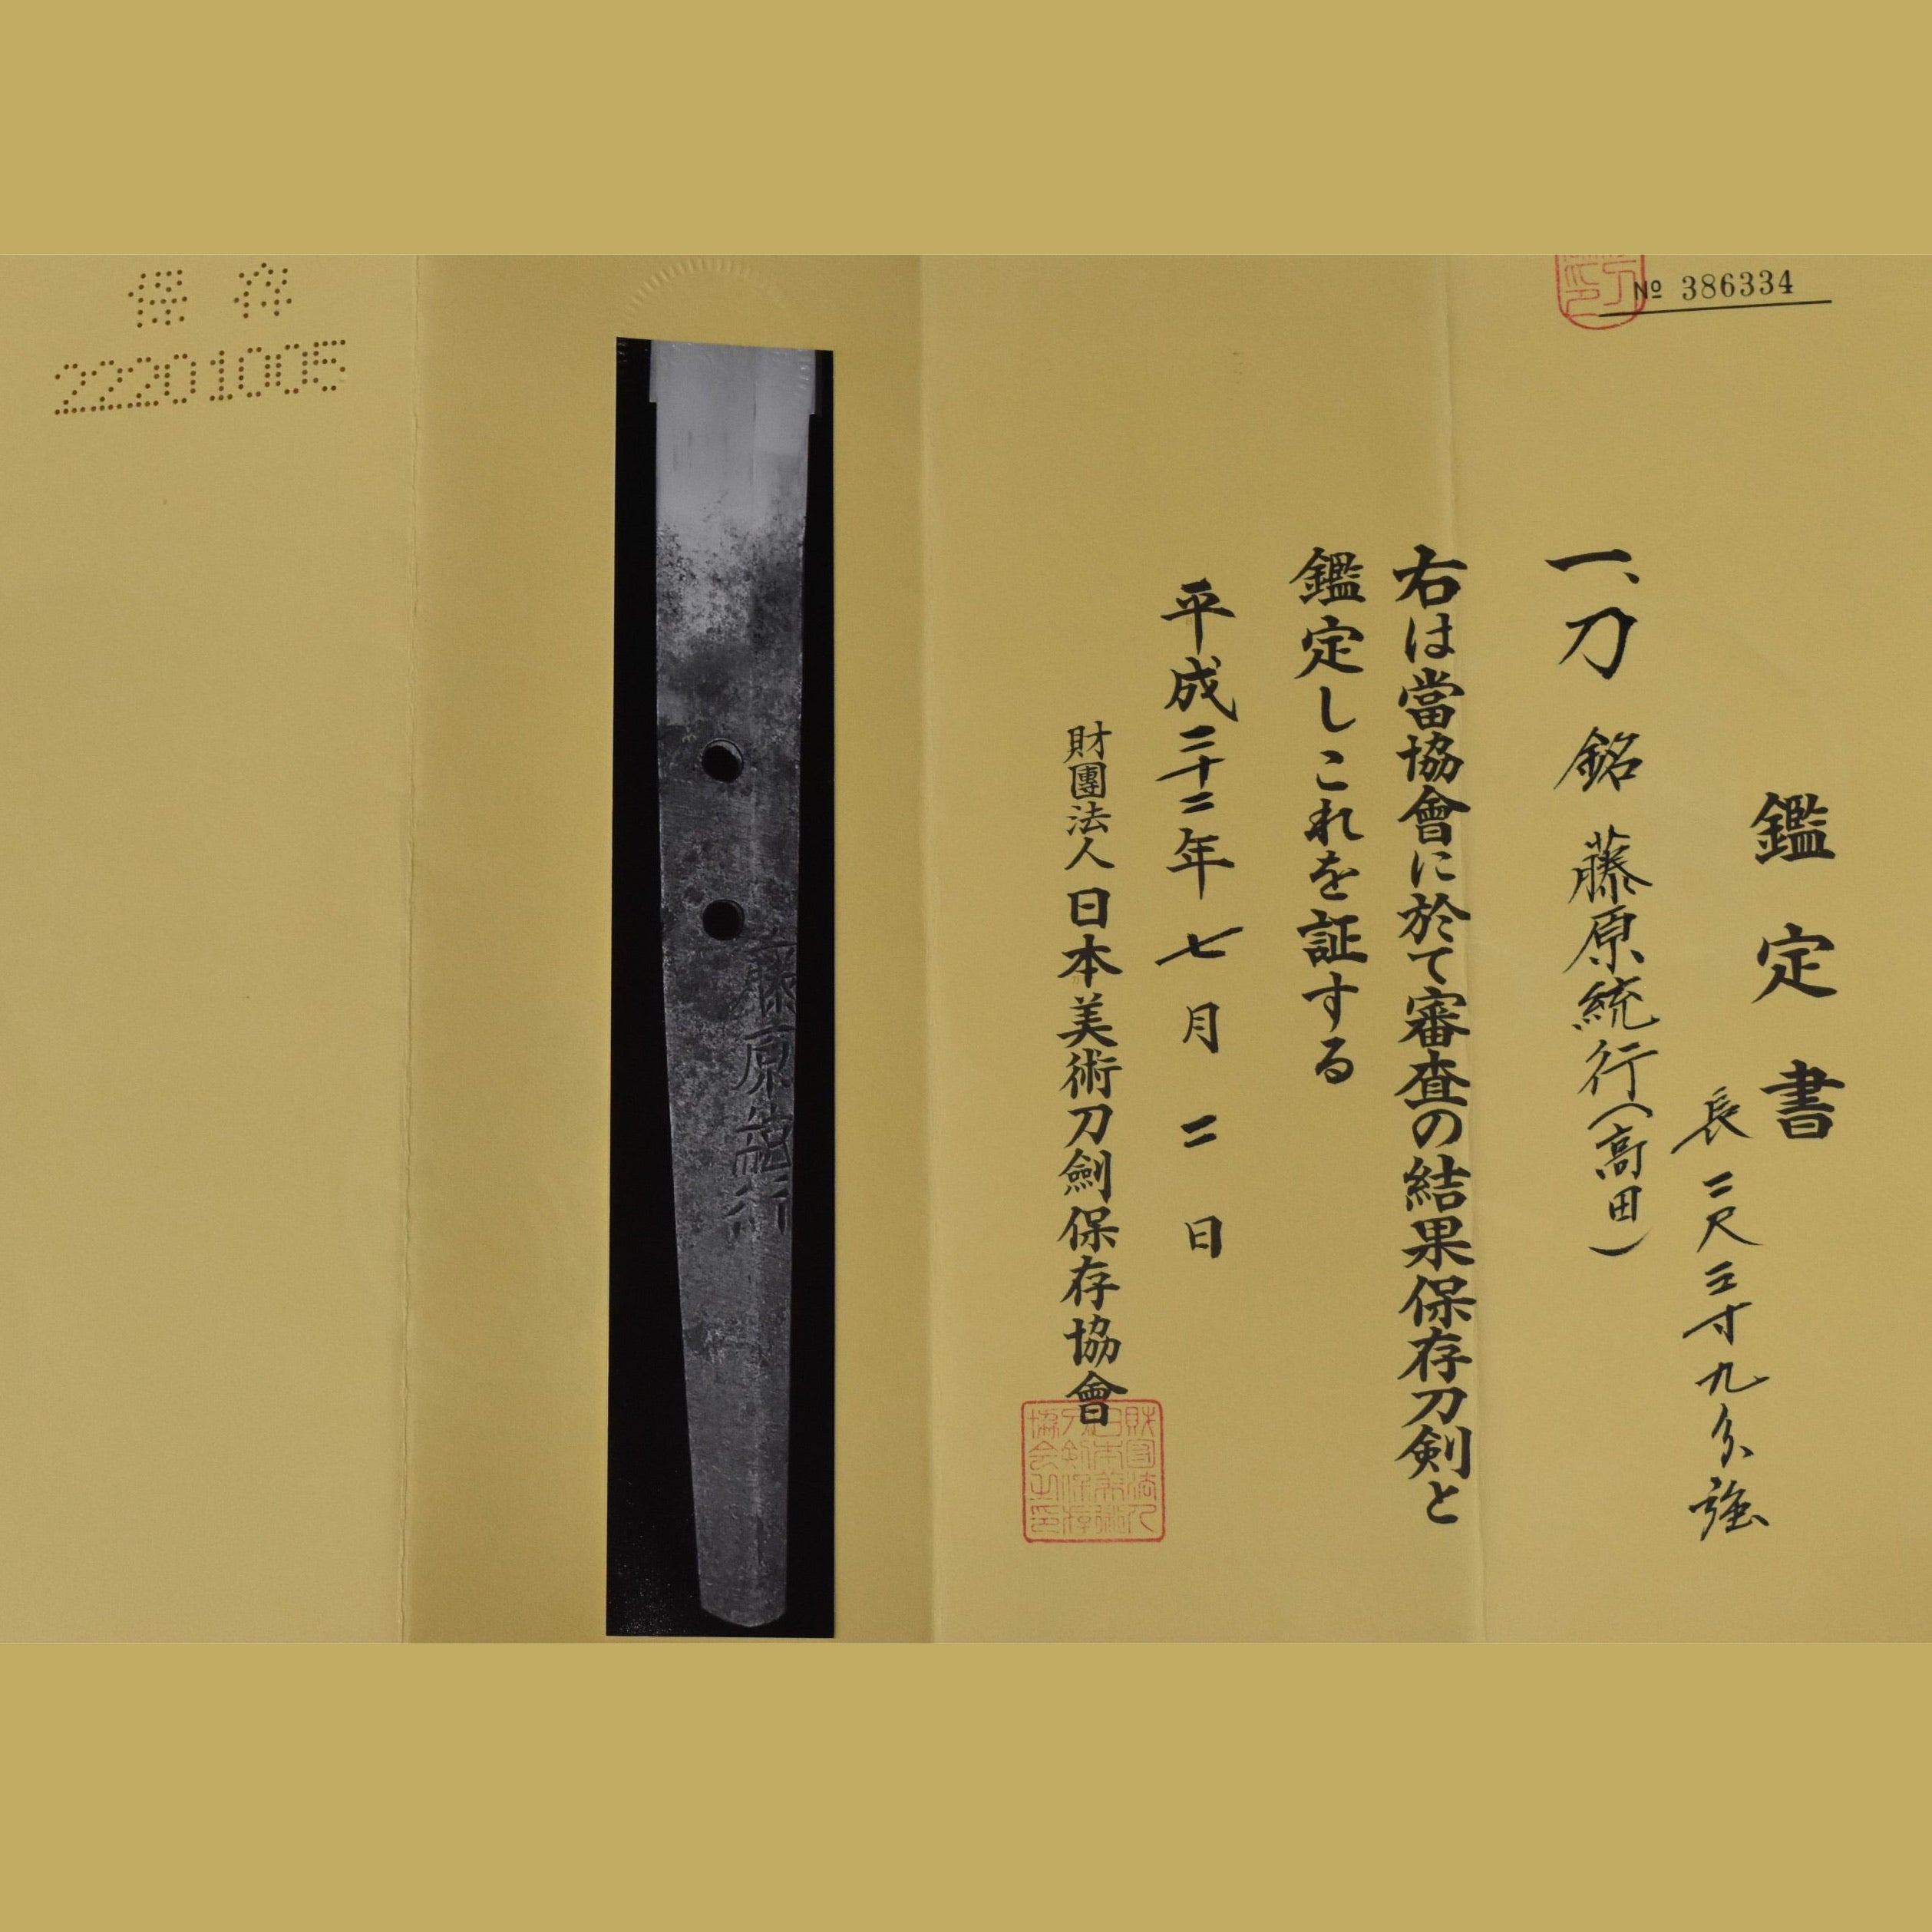 № 386334
鑑定書
長二尺三寸九分強
一、刀 銘 藤原統行(高田)
右は當協會に於て審査の結果保存刀剣と
鑑定しこれを証する
平成二十二年七月二日
財團法人日本美術刀劍保存協會
財団法人
日本美術
刀剣保存
協会之印
藤原統行
保存
22201005